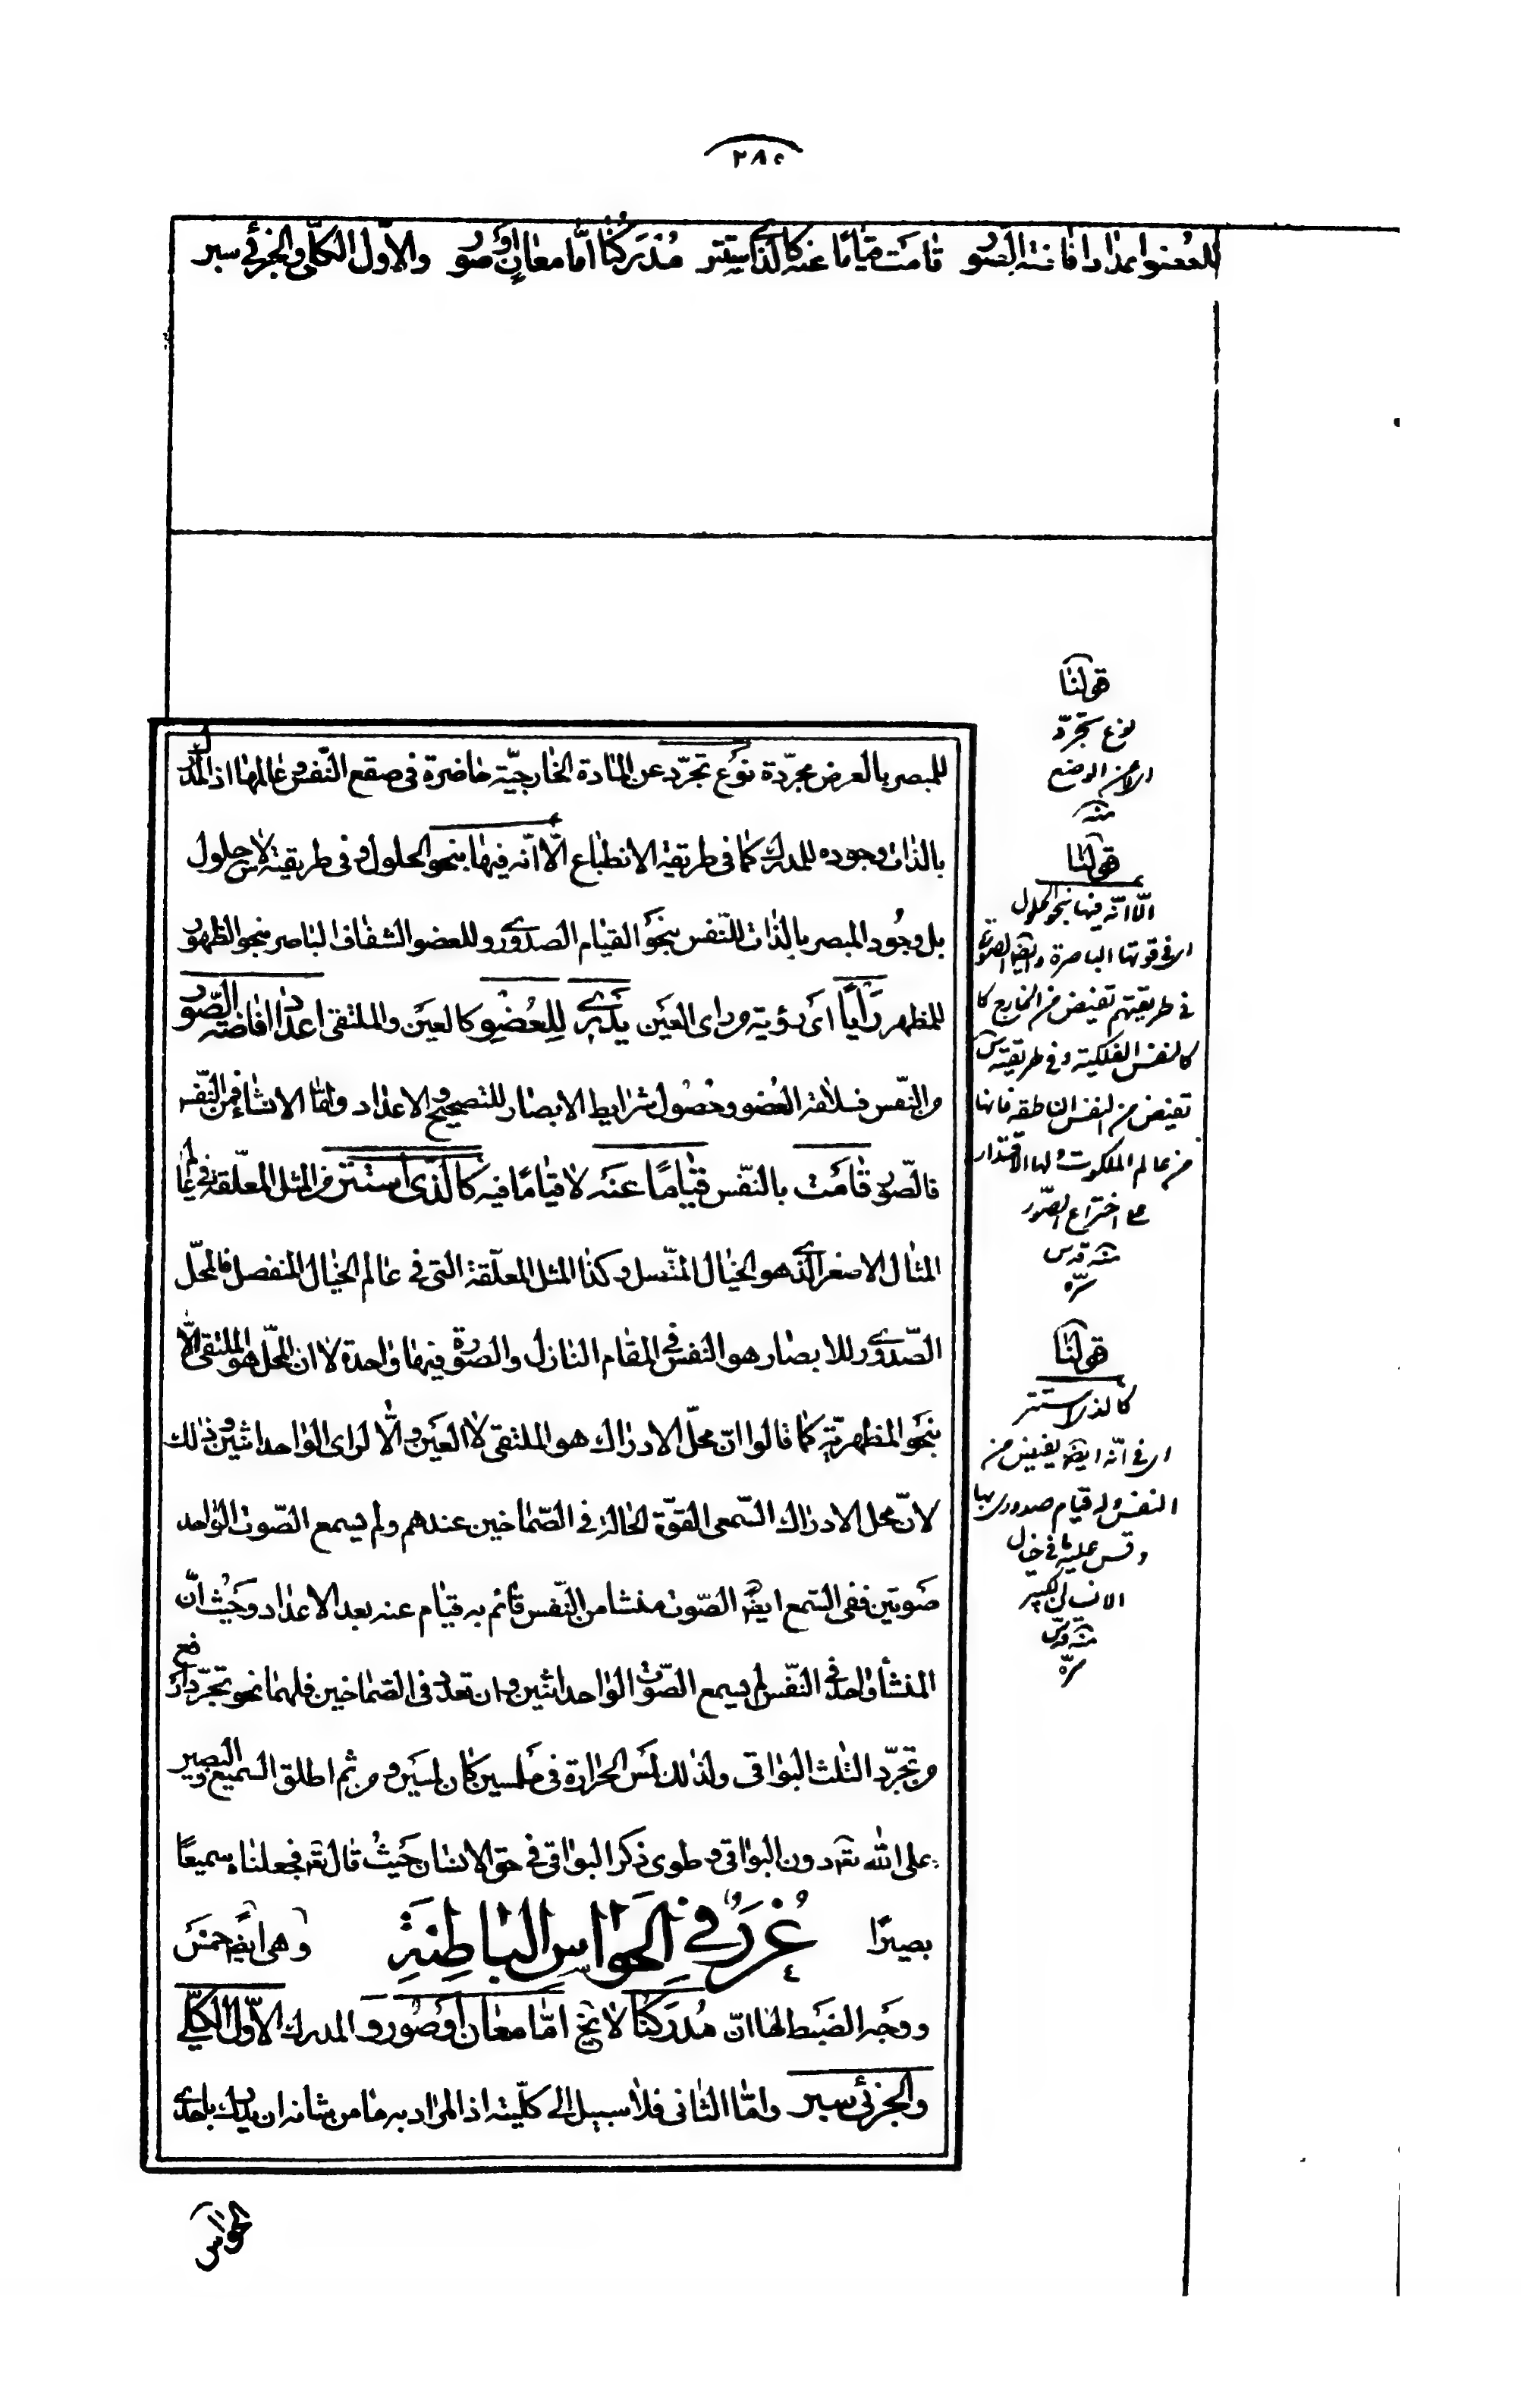 ٢٨٥
للعضو اعدادا فاضة الصور قامت قياما عنه كالذي استتر مدركنا اما معان او صور والاول الكلي والجزئي سبر
للمبصر بالعرض مجرّدة نوع تجرّد عن المادة الخارجيّة حاضرة فى صقع النّفس و عالمها اذ المدرك
بالذات وجوده للمدرك كما فى طريقة الانطباع الّا انّه فيها بنحو الحلول و فى طريقته س لا حلول
بل وجود المبصر بالذات للنّفس بنحو القيام الصدورى و للعضو الشفاف الباصر بنحو الظهور
للمظهر رأياً اى رؤية و راى العين يدرى للعضو كالعين و الملتقى اعداد افاضة الصّور
من النّفس فسلامة العضو و حصول شرايط الابصار للتصحيح و الاعداد و امّا الانشاء فمن النّفس
فالصّور قامت بالنّفس قياماً عنه لا قياماً فيه كالّذى استتر من المثل المعلّقة فى عالم
المثال الاصغر الذى هو الخيال المتّصل و كذا المثل المعلّقة التى فى عالم الخيال المنفصل فالمحلّ
الصّدورى للابصار هو النفس فى المقام النازل و الصورة فيها واحدة لا ان المحلّ هو الملتقى الّا
بنحو المظهريّة كما قالوا انّ محلّ الادراك هو الملتقى لا العين و الّا لراى الواحد اثنين و ذلك
لانّ محل الادراك السّمعى القوّة الحالة فى الصّماخين عندهم و لم يسمع الصّوت الواحد
صوتين ففى السّمع ايضا الصّوت منشا من النّفس قائم به قيام عنه بعد الاعداد و حيث انّ
المنشأ واحد فى النّفس لم يسمع الصّوت الواحد اثنين و ان تعدد فى الصّماخين فلهما نحو تجرّد ارفع
من تجرّد الثلث البواقى و لذلك لمس الحرارة فى ملمسين كان لمسين و من ثم اطلق السميع و البصير
على اللّه تعـ دون البواقى و طوى ذكر البواقى فى حق الانسان حيث قال تعـ فجعلناه سميعاً
بصيرًا غُرَرٌ فِى الحَوَاسِ البَاطِنَةِ و هى ايضا خمس
و وجه الضبط لها انّ مدركنا لا يخ امّا معان او صور و المدرك الاوّل الكلّي
و الجزئى سبر و امّا الثانى فلا سبيل الى كلّيته اذ المراد به ما من شانه ان يدرك باحدى
الحواس
قولنا
نوع تجرّد
اى عن الوضع
منه
قولنا
الّا انّه فيها بنحو الحلول
اى فى قوتها الباصرة و ايضا الصورة
فى طريقتهم تفيض من الخارج كا
كالنفس الفلكية و فى طريقته س
تفيض من النفس الناطقة فانها
من عالم الملكوت و لها الاقتدار
على اختراع الصّور
منه قدس
سرّه
قولنا
كالذى استتر
اى فى انّه ايضا يفيض من
النفس و له قيام صدورى بها
و قس عليه ما فى خيال
الانسان الكبير
منه قدّس
سرّه